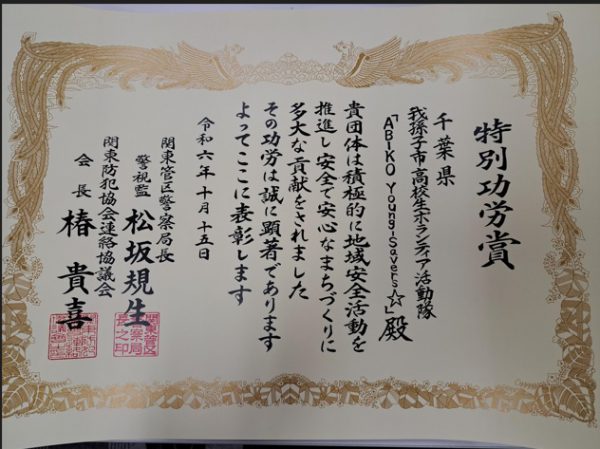 特別功労賞
千葉県
我孫子市高校生ボランティア活動隊
「ABIKO Young-Savers☆」殿
貴団体は積極的に地域安全活動を
推進し安全で安心なまちづくりに
多大な貢献をされました
その功労は誠に顕著であります
よってここに表彰します
令和六年十月十五日
関東管区警察局長
警視監 松坂規生
関東防犯協会連絡協議会
会長 椿貴喜